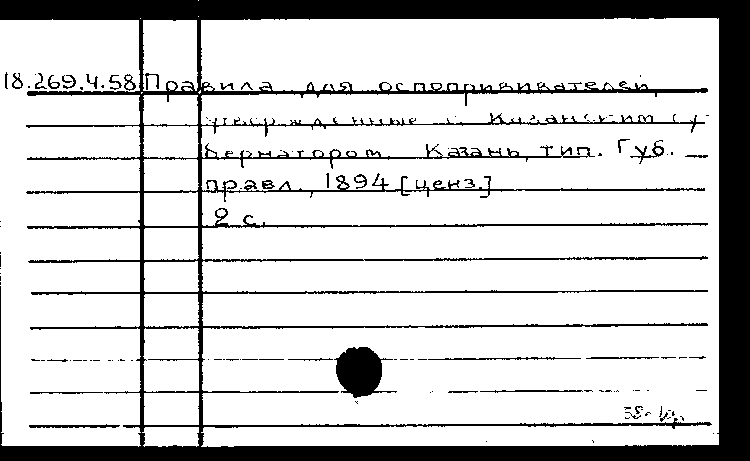 18.269.4.58 Правила для оспопрививателей,
утвержденные г. Казанским гу-
бернатором. Казань, тип. Губ.
правл., 1894 [ценз.]
2 с.